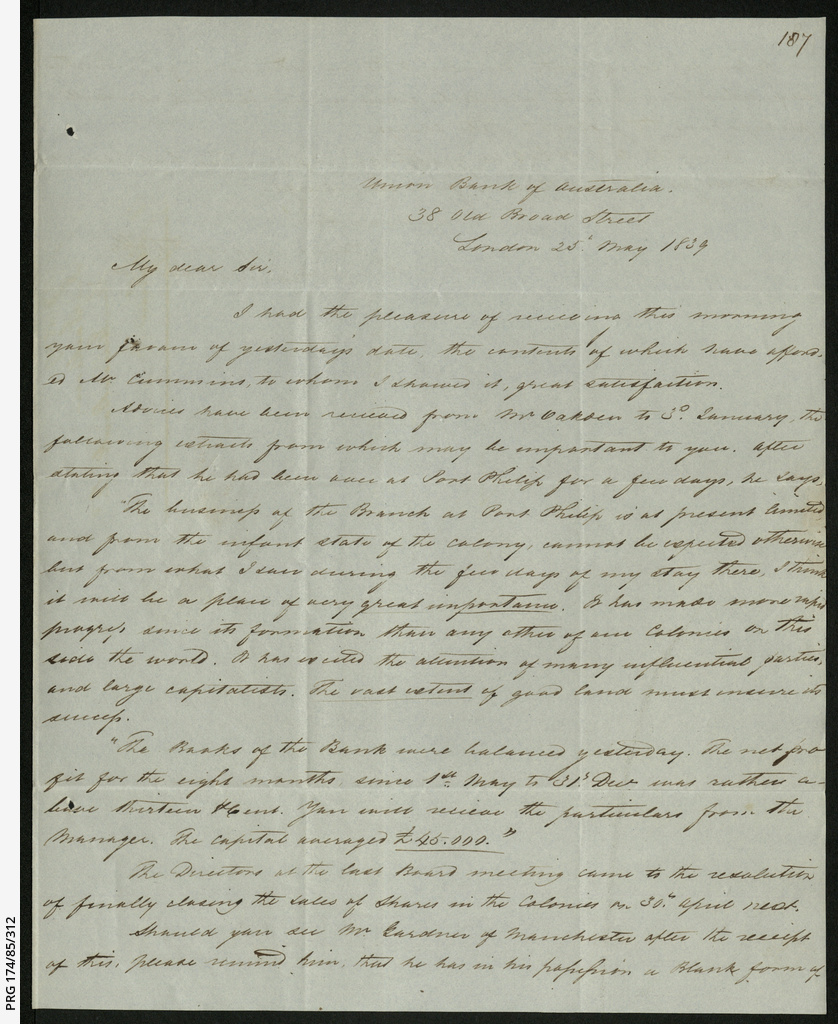 187
Union Bank of Australia.
38 Old Broad Street
London 25th May 1839
My dear Sir,
I had the pleasure of receiving this morning
your favour of yesterday's date, the contents of which have afford-
ed Mr Cummins, to whom I showed it, great satisfaction.
Advices have been received from Mr Oakden to 3d. January, the
following extracts from which may be important to you. After
stating that he had been over at Port Philip for a few days, he says,
"The business of the Branch at Port Philip is at present limited
and from the infant state of the colony, cannot be expected otherwise
but from what I saw during the few days of my stay there, I think
it will be a place of very great importance. It has made more rapid
progress since its formation than any other of our Colonies on this
side the world. It has excited the attention of many influential parties,
and large capitalists. The vast extent of good land must insure its
success.
"The Books of the Bank were balanced yesterday. The net pro
fit for the eight months, since 1st May to 31st Decr was rather a-
bove thirteen P Cent. You will receive the particulars from the
Manager. The capital averaged £45.000."
The Directors at the last Board meeting came to the resolution
of finally closing the sales of Shares in the Colonies on 30th April next.
Should you see Mr Gardner of Manchester after the receipt
of this, please remind him, that he has in his possession a Blank form of
PRG 174/85/312